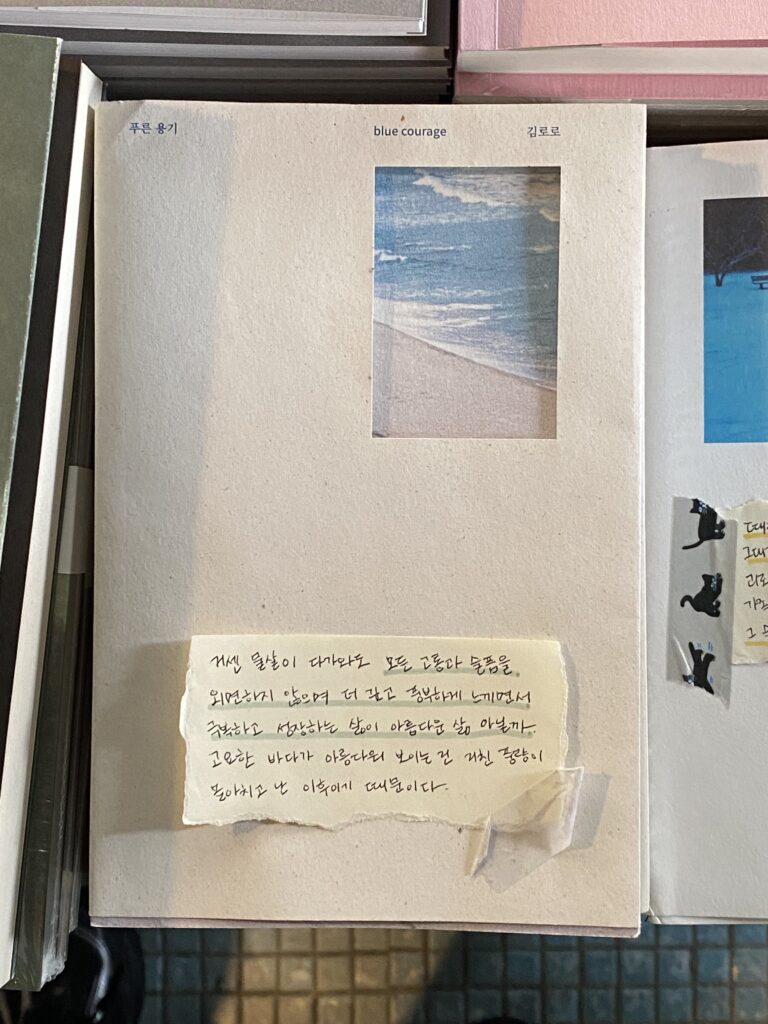 푸른 용기
blue courage
김로로
거센 물살이 다가와도 모든 고통과 슬픔을
외면하지 않으며 더 깊고 풍부하게 느끼면서
극복하고 성장하는 삶이 아름다운 삶 아닐까.
고요한 바다가 아름다워 보이는 건 거친 풍랑이
몰아치고 난 이후이기 때문이다.
그